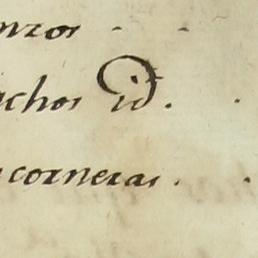 onzos . .
achos id. .
corneras . .